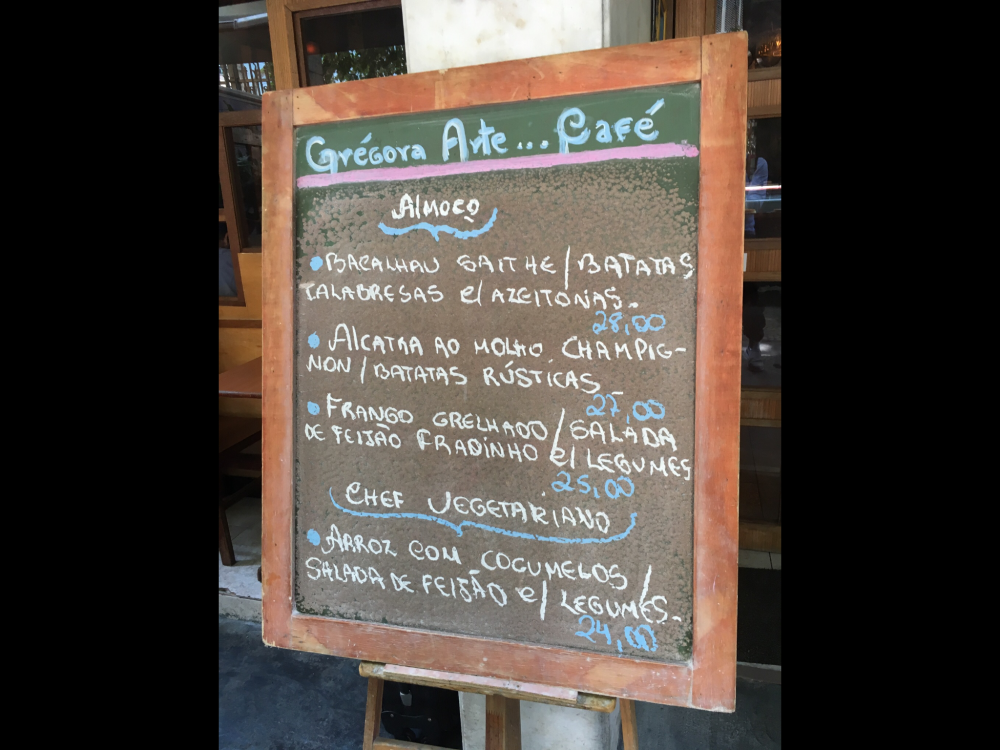 Grégora Arte... Café
Almoço
• BACALHAU SAITHE / BATATAS
CALABRESAS c/ AZEITONAS.
28,00
• ALCATRA AO MOLHO CHAMPIG-
NON / BATATAS RÚSTICAS
27,00
• FRANGO GRELHADO / SALADA
DE FEIJÃO FRADINHO c/ LEGUMES
25,00
CHEF VEGETARIANO
• ARROZ COM COGUMELOS /
SALADA DE FEIJÃO c/ LEGUMES.
24,00